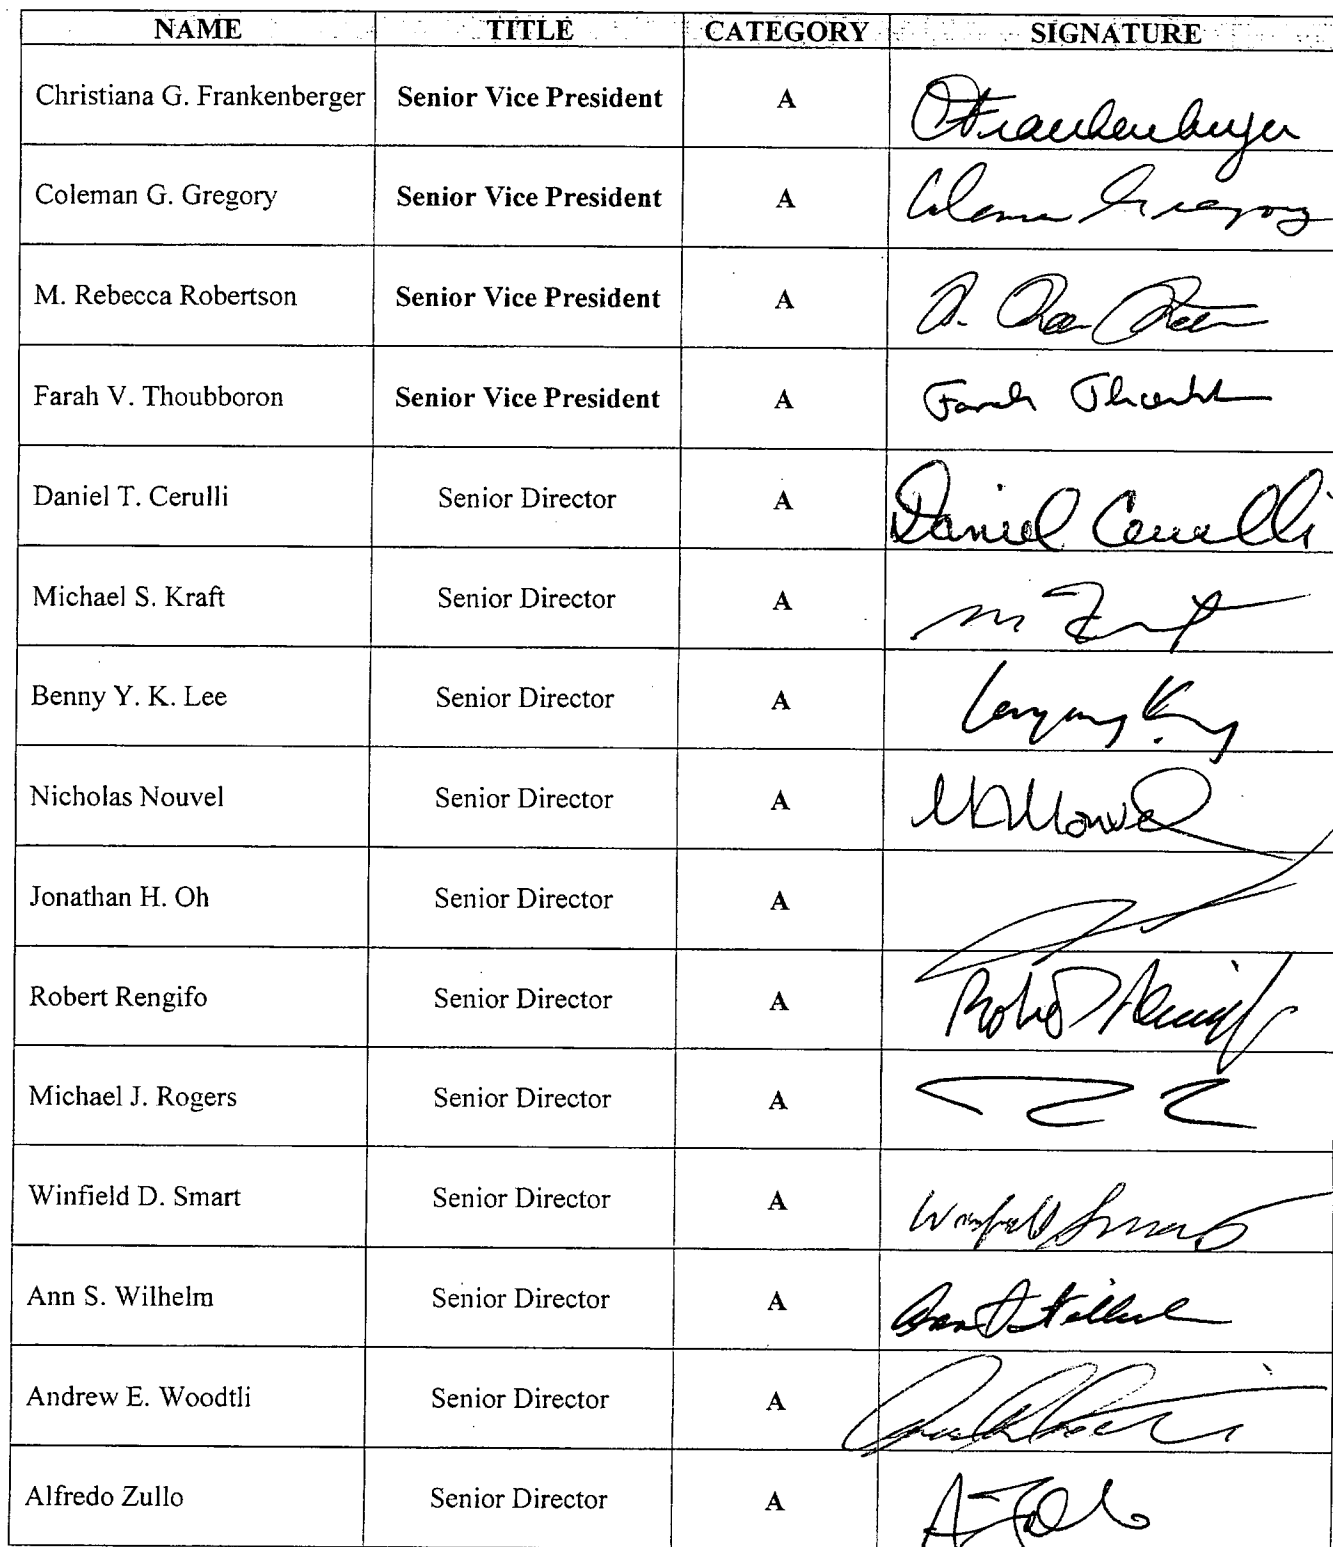 NAME TITLE CATEGORY SIGNATURE
Christiana G. Frankenberger Senior Vice President A CFrankenberger
Coleman G. Gregory Senior Vice President A Coleman Gregory
M. Rebecca Robertson Senior Vice President A
Farah V. Thoubboron Senior Vice President A Farah
Daniel T. Cerulli Senior Director A Daniel Cerulli
Michael S. Kraft Senior Director A
Benny Y. K. Lee Senior Director A
Nicholas Nouvel Senior Director A
Jonathan H. Oh Senior Director A
Robert Rengifo Senior Director A Robert Rengifo
Michael J. Rogers Senior Director A
Winfield D. Smart Senior Director A Winfield Smart
Ann S. Wilhelm Senior Director A
Andrew E. Woodtli Senior Director A
Alfredo Zullo Senior Director A